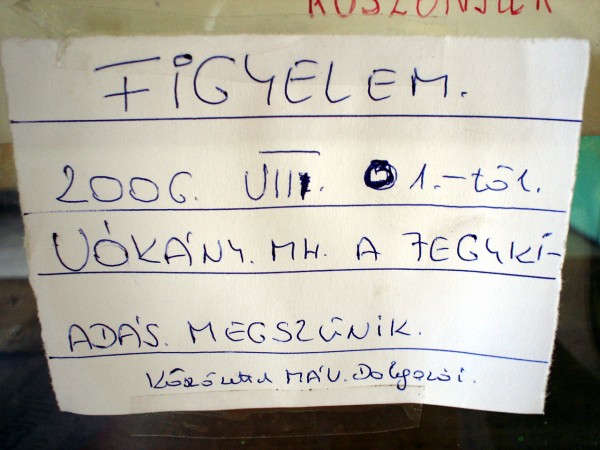 KÖSZÖNJÜK
FIGYELEM.
2006. VIII. 01.-től.
VÓKÁNY. MH. A JEGYKI-
ADÁS. MEGSZŰNIK.
Köszönettel MÁV. Dolgozói.